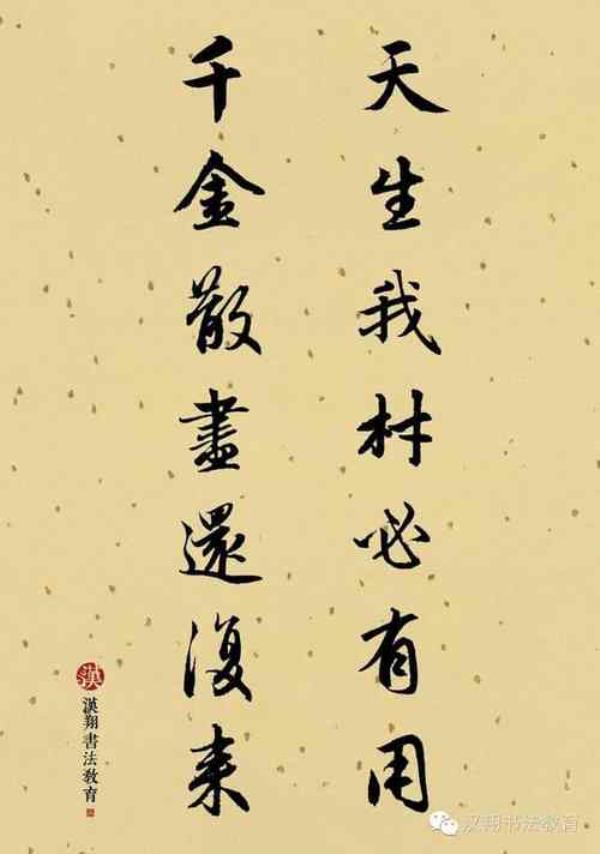 天生我材必有用
千金散盡還復来
漢
漢翔書法教育
汉翔书法教育